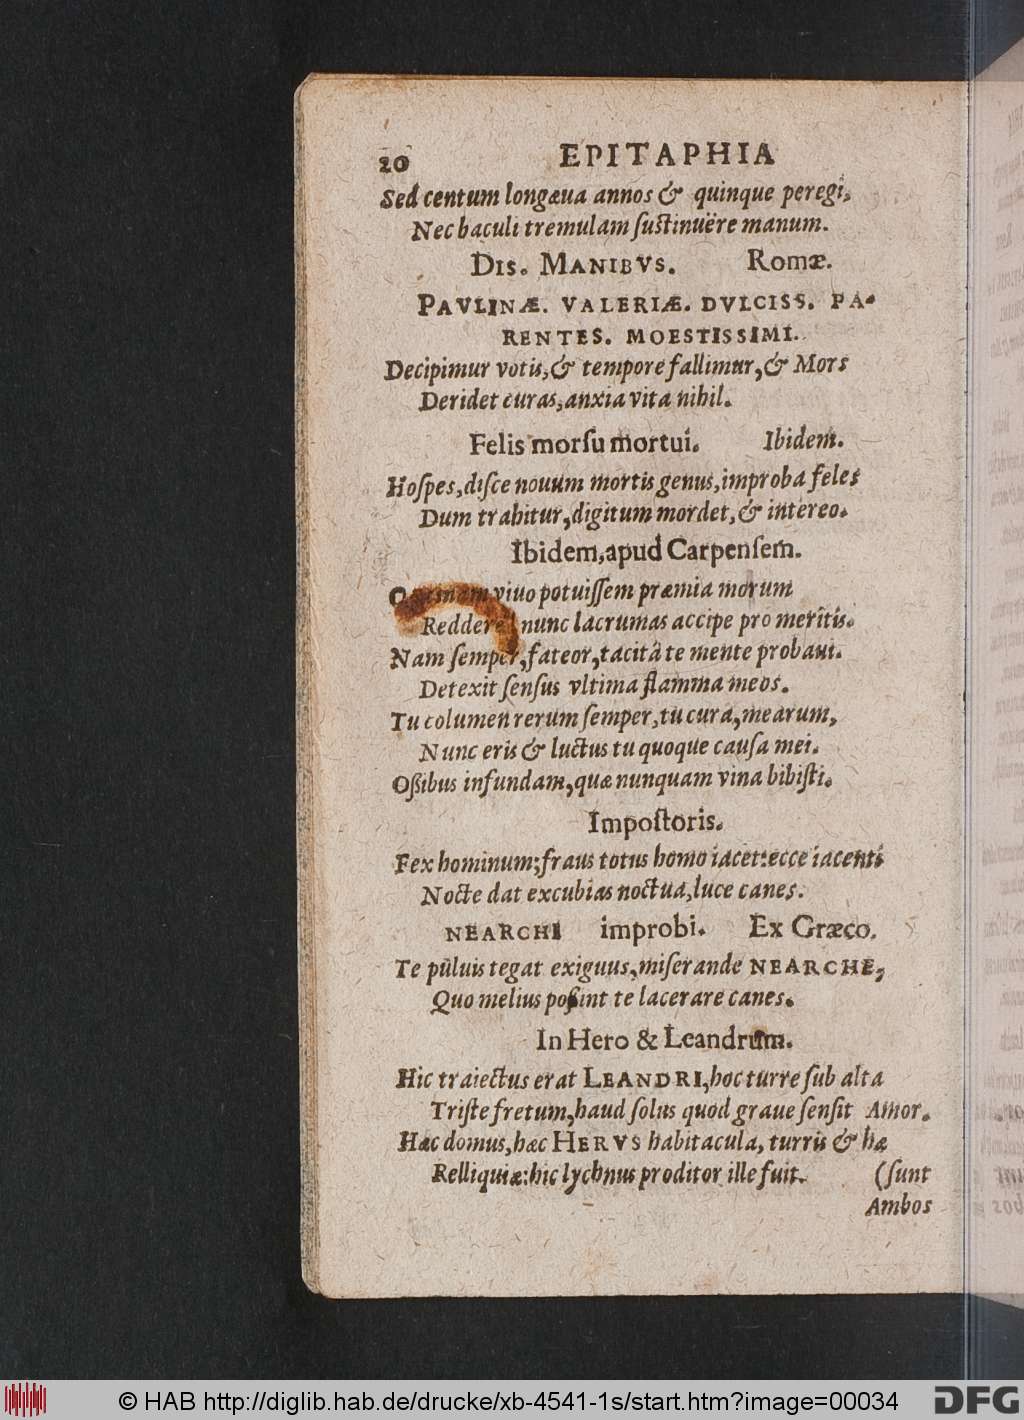 20 EPITAPHIA
Sed centum longæua annos & quinque peregi,
Nec baculi tremulam ſuſtinuëre manum.
DIS. MANIBVS. Romæ.
PAVLINÆ. VALERIÆ. DVLCISS. PA-
RENTES. MOESTISSIMI.
Decipimur votis, & tempore fallimur, & Mors
Deridet curas, anxia vita nihil.
Felis morſu mortui. Ibidem.
Hoſpes, diſce nouum mortis genus, improba feles
Dum trahitur, digitum mordet, & intereo.
Ibidem, apud Carpenſem.
viuo potuiſſem præmia morum
Reddere! nunc lacrumas accipe pro meritis.
Nam ſemper, fateor, tacitâ te mente probaui.
Detexit ſenſus vltima flamma meos.
Tu columen rerum ſemper, tu cura, mearum,
Nunc eris & luctus tu quoque cauſa mei.
Oßibus infundam, quæ nunquam vina bibiſti.
Impoſtoris.
Fex hominum; fraus totus homo iacet: ecce iacenti
Nocte dat excubias noctua, luce canes.
NEARCHI improbi. Ex Græco.
Te puluis tegat exiguus, miſerande NEARCHE,
Quo melius poßint te lacerare canes.
In Hero & Leandrum.
Hic traiectus erat LEANDRI, hoc turre ſub alta
Triſte fretum, haud ſolus quod graue ſenſit Amor.
Hæc domus, hæc HERVS habitacula, turris & hæ
Relliquiæ: hic lychnus proditor ille fuit. (ſunt
Ambos
© HAB http://diglib.hab.de/drucke/xb-4541-1s/start.htm?image=00034
DFG